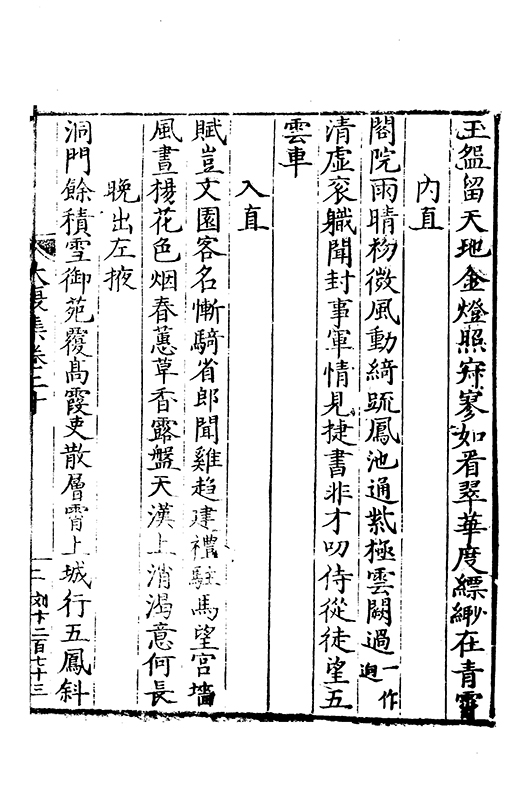 玉盤留天地金燈照寂寥如看翠華度縹緲在青霄
內直
閣院雨晴初微風動綺疏鳳池通紫極雲闕過一作迥
清虛衮職聞封事軍情見捷書非才叨侍從徒望五
雲車
入直
賦豈文園客名慚騎省郎聞雞趨建禮駐馬望宮墻
風晝楊花色烟春蕙草香露盤天漢上消渴意何長
晚出左掖
洞門餘積雪御苑覆高霞吏散層霄上城行五鳳斜
大復集卷二十
二
刘十二百七十三